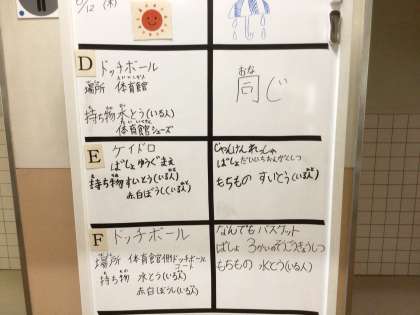 /12 (木)
D ドッチボール
場所 体育館
たいいくかん
持ち物 水とう(いる人)
体育館シューズ
おな
同じ
E ケイドロ
ばしょ ゆうぐまえ
持ち物 すいとう(いる人)
赤白ぼうし(いる人)
じゃんけんれっしゃ
ばしょ だいいちおんがくしつ
もちもの すいとう(いる人)
F ドッチボール
場所 体育館側ドッチボール
コート
持ち物 水とう(いる人)
赤白ぼうし(いる人)
なんでもバスケット
ばしょ 3かいの
もちもの 水とう(いる人)